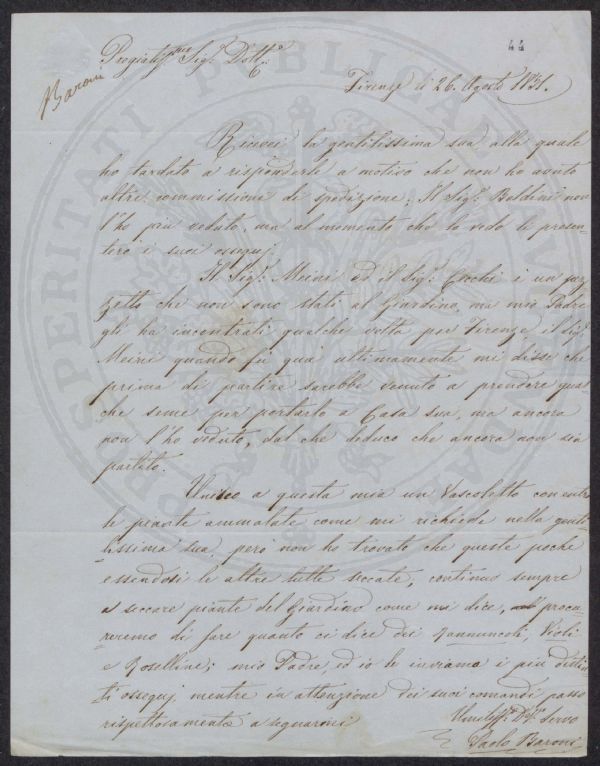 44
Baroni
Pregiatiss.mo Sig.r Dott.e
Firenze li 26. Agosto 1851.
Ricevei la gentilissima sua alla quale
ho tardato a risponderle a motivo che non ho avuto
altre commissione di spedizione; Il Sig.r Baldini non
l'ho più veduto, ma al momento che lo vedo le presen-
terò i suoi ossequj.
Il Sig.r Meini ed il Sig.r Cecchi è un pez
zetto che non sono stati al Giardino, ma mio Padre
gli ha incontrati qualche volta per Firenze il Sig.r
Meini quando fù quà ultimamente mi disse che
prima di partire sarebbe venuto a prendere qual
che seme per portarlo a Casa sua, ma ancora
non l'ho veduto, dal che deduco che ancora non sia
partito.
Unisco a questa mia un Vascoletto con entro
le piante ammalate come mi richiede nella genti-
lissima sua, però non ho trovato che queste poche
essendosi le altre tutte seccate, continuo sempre
a seccare piante del Giardino come mi dice, procu-
reremo di fare quanto ci dice dei Rannuncoli, Violi
e Roselline; mio Padre ed io le inviamo i più distin-
ti ossequj mentre in attenzione dei suoi comandi passo
rispettosamente a segnarmi
Umiliss.o D.mo Servo
Paolo Baroni
PROSPERITATI PUBLICAE AUGENDAE